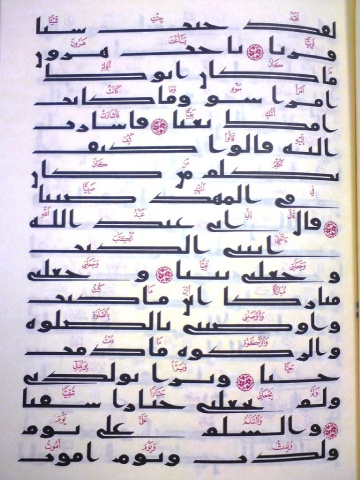 لقد جئت شيئا
فريا ياخت هرون
ما كان ابوك
امرا سو وما كانت
امك بغيا فاشارت
اليه قالوا كيف
نكلم من كان
في المهد صبيا
قال اني عبد الله
اتىني الكتب
و جعلني نبيا و جعلني
مباركا اين ما كنت
واوصني بالصلوه
والزكوه ما دمت
حيا وبرا بولدتي
ولم يجعلني جبارا شقيا
والسلم علي يوم
ولدت ويوم اموت